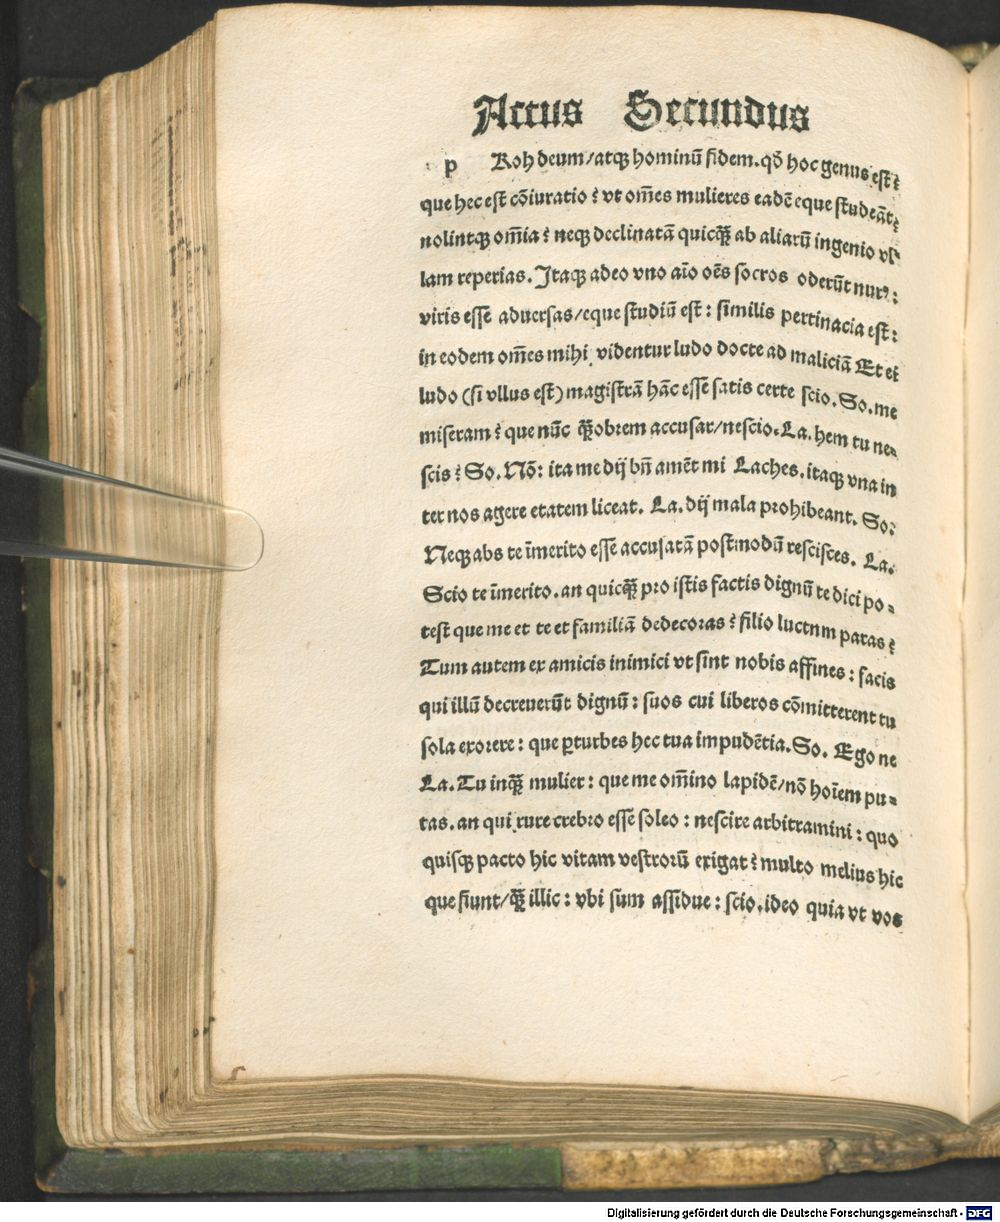 Actus Secundus
p Roh deum/atqꝫ hominū fidem. qđ hoc genus est?
que hec est cōiuratio? vt om̄es mulieres eadē eque studeāt;
nolintqꝫ om̄ia? neqꝫ declinatā quicq̄ꝫ ab aliarū ingenio vl-
lam reperias. Itaqꝫ adeo vno aīo oēs socros oderūt nurꝰ:
viris esse aduersas/eque studiū est: similis pertinacia est:
in eodem om̄es mihi videntur ludo docte ad maliciā Et ei
ludo (si vllus est) magistrā hāc esse satis certe scio. So. me
miseram? que nūc q̄ꝫobrem accusar/nescio. La. hem tu ne-
scis? So. Nō: ita me dij bn̄ amēt mi Laches. itaqꝫ vna in
ter nos agere etatem liceat. La. dij mala prohibeant. So:
Neqꝫ abs te īmerito esse accusatā postmodū rescisces. La.
Scio te īmerito. an quicq̄ꝫ pro istis factis dignū te dici po-
test que me et te et familiā dedecoras? filio luctnm paras?
Tum autem ex amicis inimici vt sint nobis affines: facis
qui illū decreuerūt dignū: suos cui liberos cōmitterent tu
sola exorere: que ꝑturbes hec tua impudētia. So. Ego ne
La. Tu inq̄ꝫ mulier: que me om̄ino lapidē/nō hoīem pu-
tas. an qui rure crebro esse soleo: nescire arbitramini: quo
quisqꝫ pacto hic vitam vestrorū exigat? multo melius hic
que fiunt/q̄ꝫ illic: vbi sum assidue: scio. ideo quia vt vos
Digitalisierung gefördert durch die Deutsche Forschungsgemeinschaft - DFG